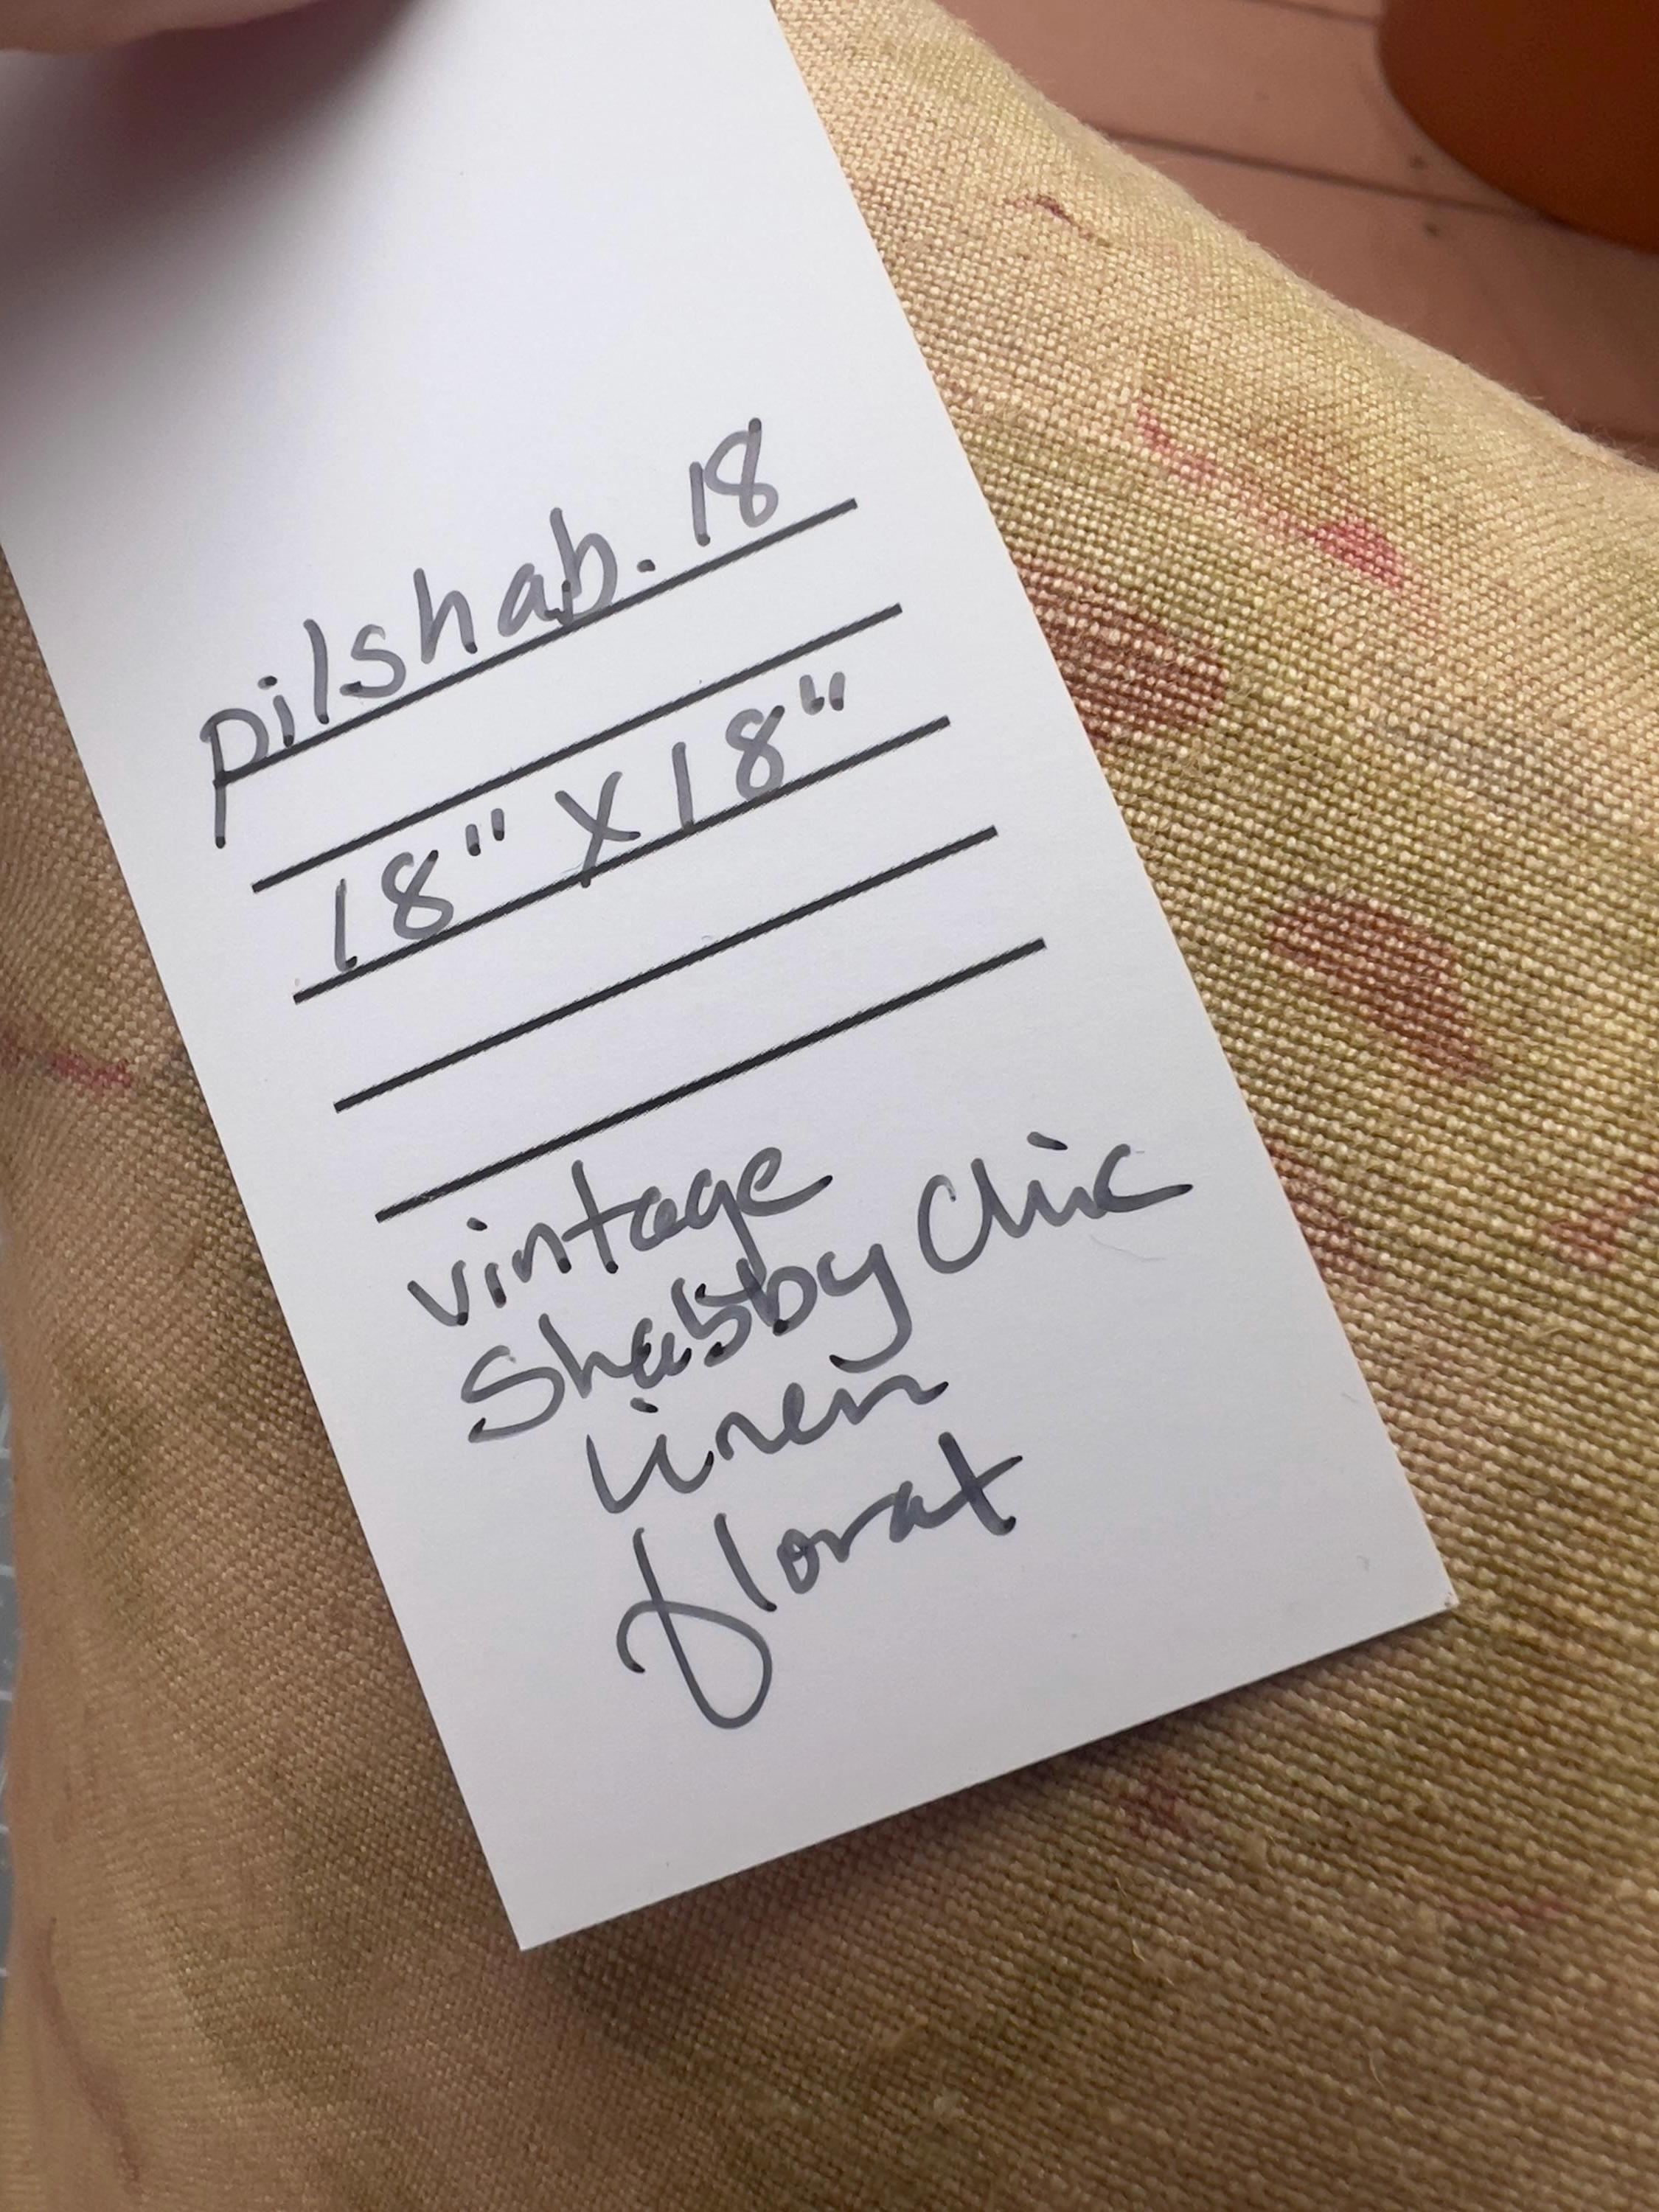 pilshab.18
18" X 18"
vintage
Shabby Chic
linen
floral